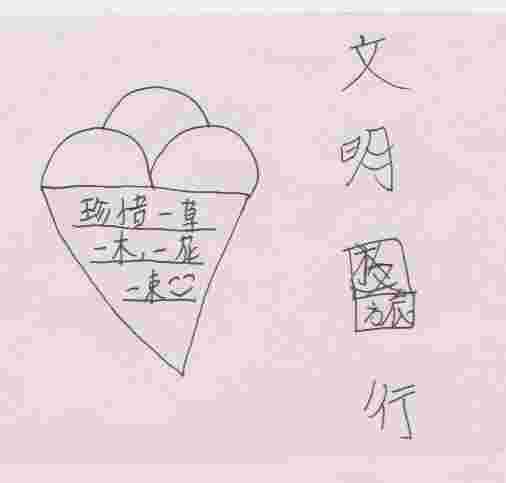 文明旅行
珍惜一草
一木,一花
一束